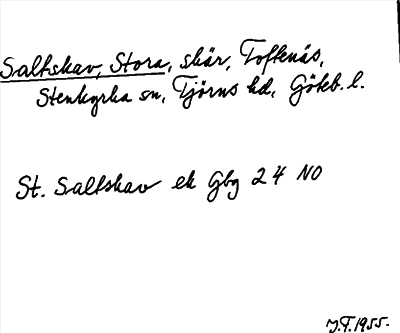 Saltskav, Stora, skär, Toftenäs,
Stenkyrka sn, Tjörns hd, Götebl. l.
St. Saltskav ek Gbg 24 NO
J.F. 1955.